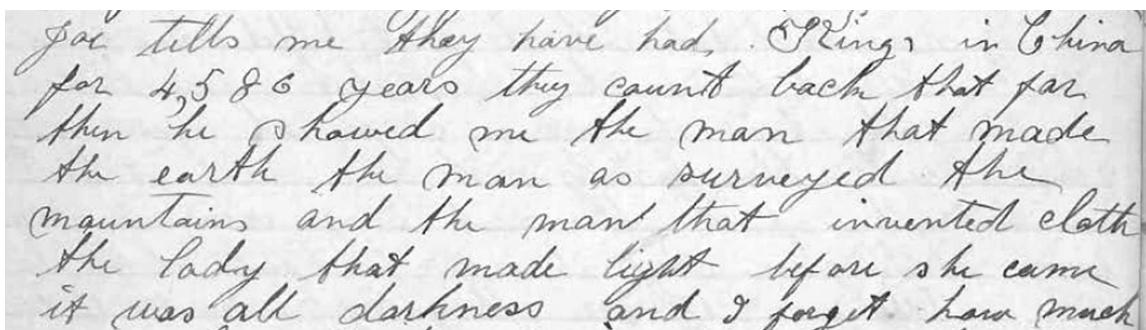 Joe tells me they have had Kings in China
for 4,586 years they count back that far
then he showed me the man that made
the earth the man as surveyed the
mountains and the man that invented cloth
the lady that made light before she came
it was all darkness and I forget how much